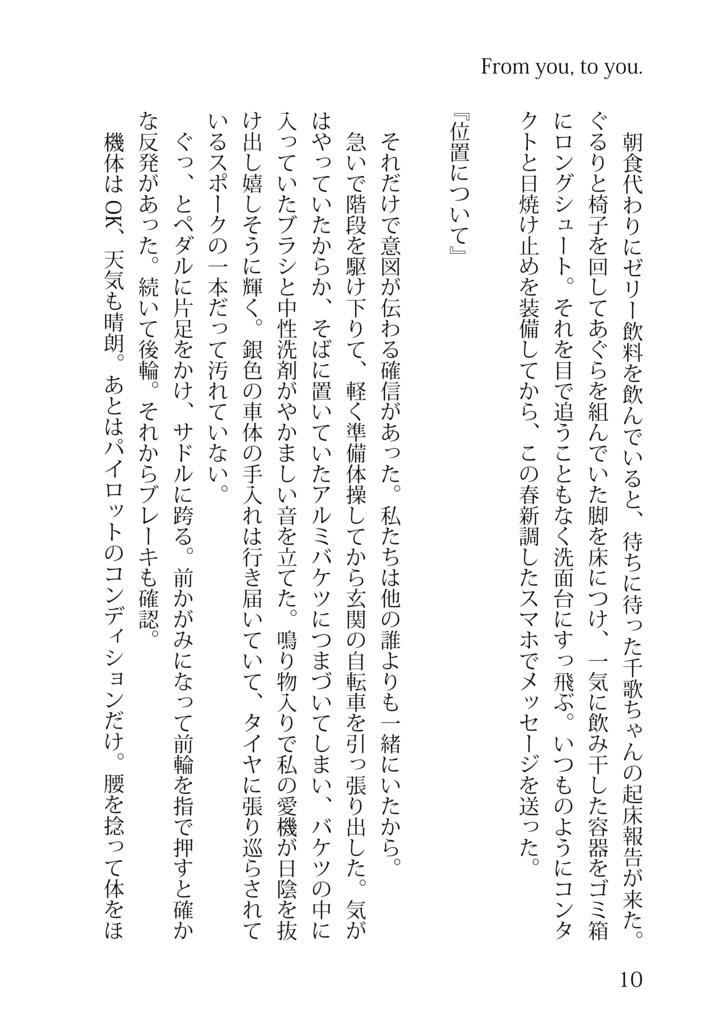 From you, to you.
朝食代わりにゼリー飲料を飲んでいると、待ちに待った千歌ちゃんの起床報告が来た。
ぐるりと椅子を回してあぐらを組んでいた脚を床につけ、一気に飲み干した容器をゴミ箱
にロングシュート。それを目で追うこともなく洗面台にすっ飛ぶ。いつものようにコンタ
クトと日焼け止めを装備してから、この春新調したスマホでメッセージを送った。
『位置について』
それだけで意図が伝わる確信があった。私たちは他の誰よりも一緒にいたから。
急いで階段を駆け下りて、軽く準備体操してから玄関の自転車を引っ張り出した。気が
はやっていたからか、そばに置いていたアルミバケツにつまづいてしまい、バケツの中に
入っていたブラシと中性洗剤がやかましい音を立てた。鳴り物入りで私の愛機が日陰を抜
け出し嬉しそうに輝く。銀色の車体の手入れは行き届いていて、タイヤに張り巡らされて
いるスポークの一本だって汚れていない。
ぐっ、とペダルに片足をかけ、サドルに跨る。前かがみになって前輪を指で押すと確か
な反発があった。続いて後輪。それからブレーキも確認。
機体は OK、天気も晴朗。あとはパイロットのコンディションだけ。腰を捻って体をほ
10